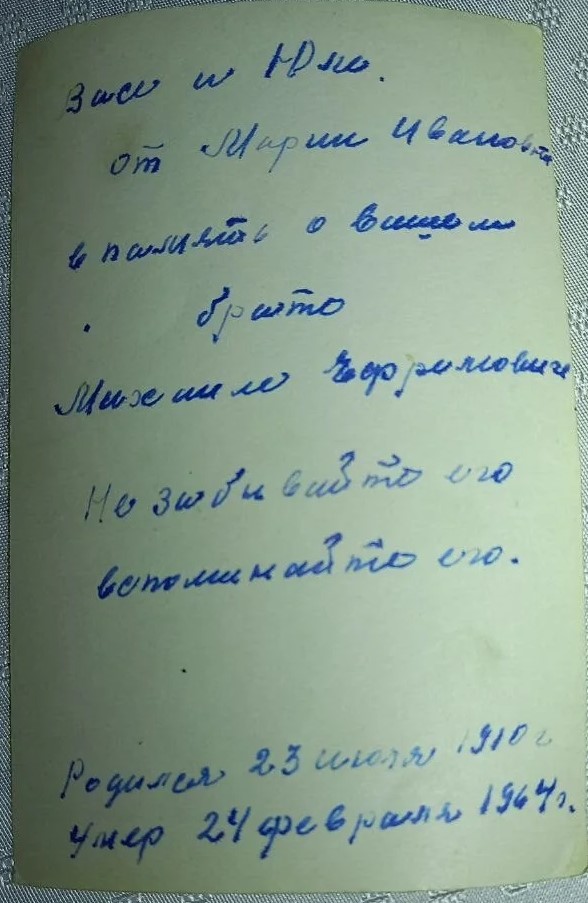 Васе и Юле.
от Марии Ивановны
в память о вашем
брате
Михаиле Ефримовиче
Не забывайте его
вспоминайте его.
Родился 23 июля 1910 г
Умер 24 февраля 1964 г.